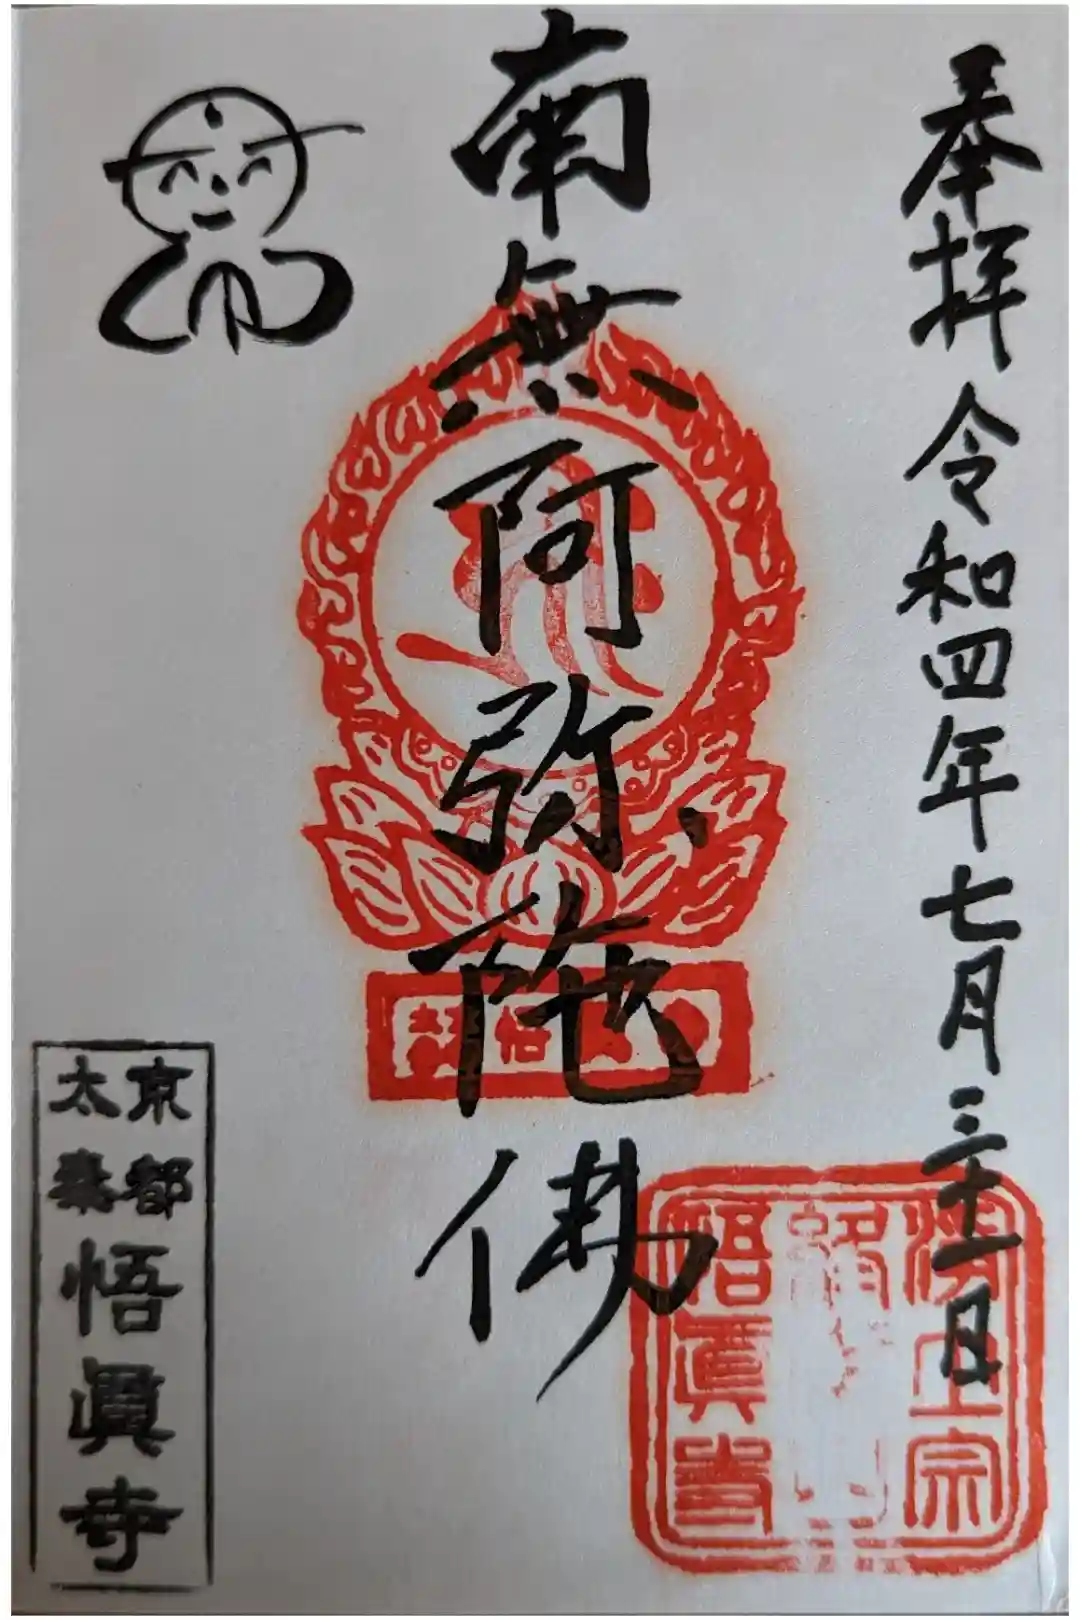 奉拝 令和四年七月三十一日
南無阿弥陀佛
浄土宗
悟眞寺
京都
太秦
悟眞寺